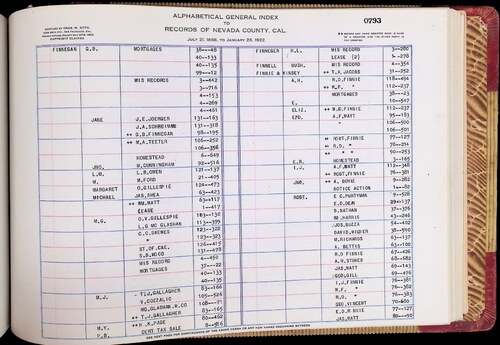 ALPHABETICAL GENERAL INDEX
TO
RECORDS OF NEVADA COUNTY, CAL.
JULY 21, 1856, TO JANUARY 25, 1922
0793
FINNEGAN G.B. MORTGAGES 38—48
40—133
40—135
99—12
MIS RECORD 3—442
3—716
4—153
4—289
4—461
JANE J.E. JOERGER 131—163
J.A. SCHREIHANS 131—318
++ G.B. FINNEGAN 98—195
++ M.A. TEETER 106—252
106—356
HOMESTEAD 6—649
JNO. M. CUNNINGHAM 92—516
L.M. L.B. OWEN 121—137
M. M. FORD 121—405
MARGARET O. GILLESPIE 124—473
MICHAEL JAS. SHEA 63—423
++ WM. WATT 63—117
LEASE 1—417
M.G. O.V. GILLESPIE 103—130
L.G. MC GLASHAN 113—399
C.C. SKEWES 122—323
" 122—323
ST. OF. CAL. 126—415
S.B. WOOD 131—478
MIS RECORD 4—450
MORTGAGES 37—22
40—133
40—135
M.J. T.J. GALLAGHER 83—166
V. COZZALIO 105—526
MC. GLASHAN. W. CO 108—71
++ T.J. GALLAGHER 83—165
++ H.K. PAGE 80—462
M.Y. CERT TAX SALE 8—516
P.B.
FINNEGER H.L. MIS RECORD 3—280
LEASE (2) 4—278
FINNELL BUSH. MIS RECORD 4—354
FINNIE & KINSEY ++ T.A. JACOBS 31—252
A.H. R.D. FINNIE 118—494
++ M.F. " 112—237
MORTGAGES 38—23
E. 10—517
ELIZ. ++ W.B. FINNIE 112—237
EZD. A.F. WATT 95—183
" 106—500
" 106—501
++ ROBT. FINNIE 77—127
++ R.D. " 78—214
++ " " 90—253
E.R. HOMESTEAD 3—165
I.J. A.F. WATT 112—348
++ ROBT. FINNIE 76—381
JNO. ++ A. BOYLE 9—262
NOTICE ACTION 1—82
ROBT. E.G. PUHTYMAN 9—528
E.D. DEAN 29—137
B. NATHAN 37—376
WM. HARRIS 43—248
JOS. BUZZA 54—402
DAVID. WISNER 38—590
M. RICHARDS 62—308
A. BETTIS 63—100
R.D. FINNIE 65—478
A.H. STOKER 68—582
JAS. WATT 69—143
GEO. GILL 69—476
I.J. FINNIE 76—382
M.F. " 76—382
R.D. " 76—383
GEO. VINCENT 70—600
R.D. FINNIE 77—127
JAS. WATT 88—90